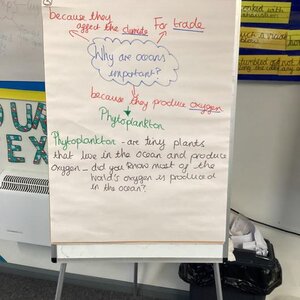 because they
affect the climate
For trade
Why are oceans
important?
because they produce oxygen
Phytoplankton
Phytoplankton - are tiny plants
that live in the ocean and produce
oxygen - did you know most of the
world's oxygen is produced
in the ocean?
OUR
EX